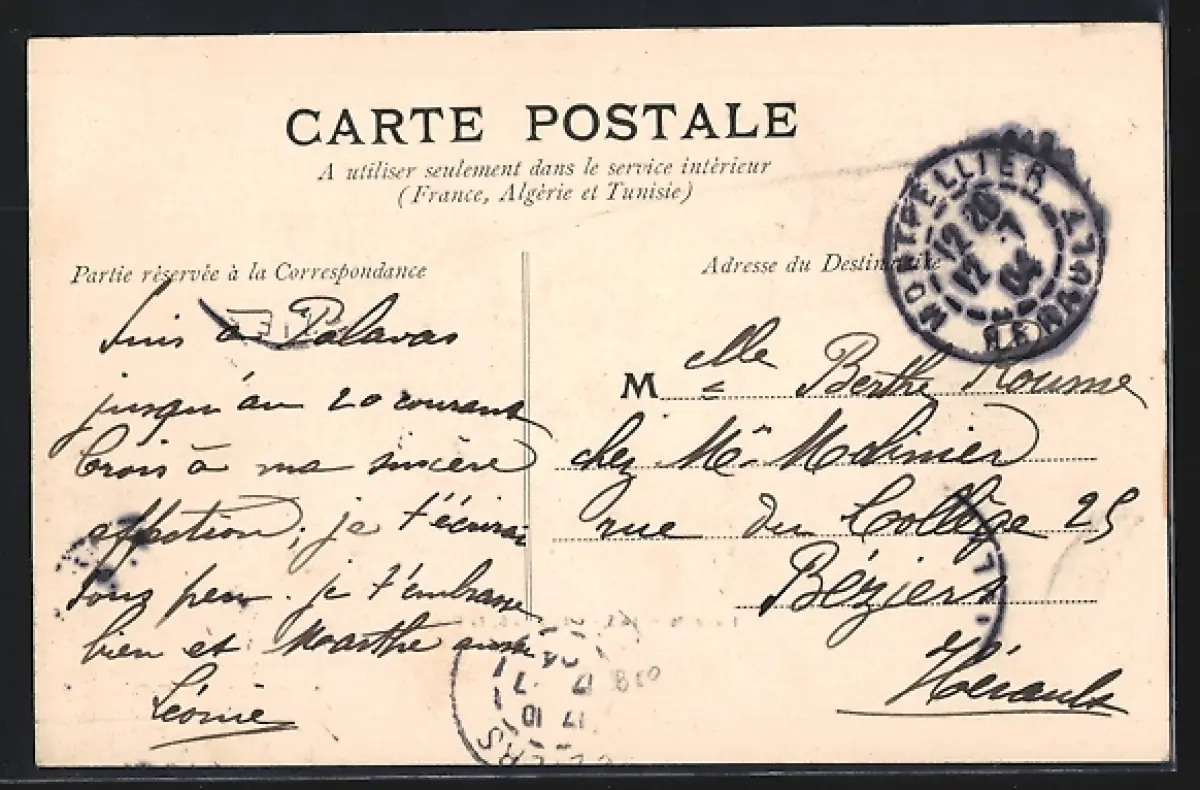 CARTE POSTALE
A utiliser seulement dans le service intérieur
(France, Algérie et Tunisie)
Partie réservée à la Correspondance
Suis à Palavas
jusqu'au 20 courant
Crois à ma sincère
affection; je t'écrirai
sous peu. je t'embrasse
bien et Marthe aussi
Léonie
Adresse du Destinataire
M elle Berthe Roume
chez Me Molinier
rue du Collège 25
Béziers
Hérault
MONTPELLIER
12 20
17 7
04
HERAULT